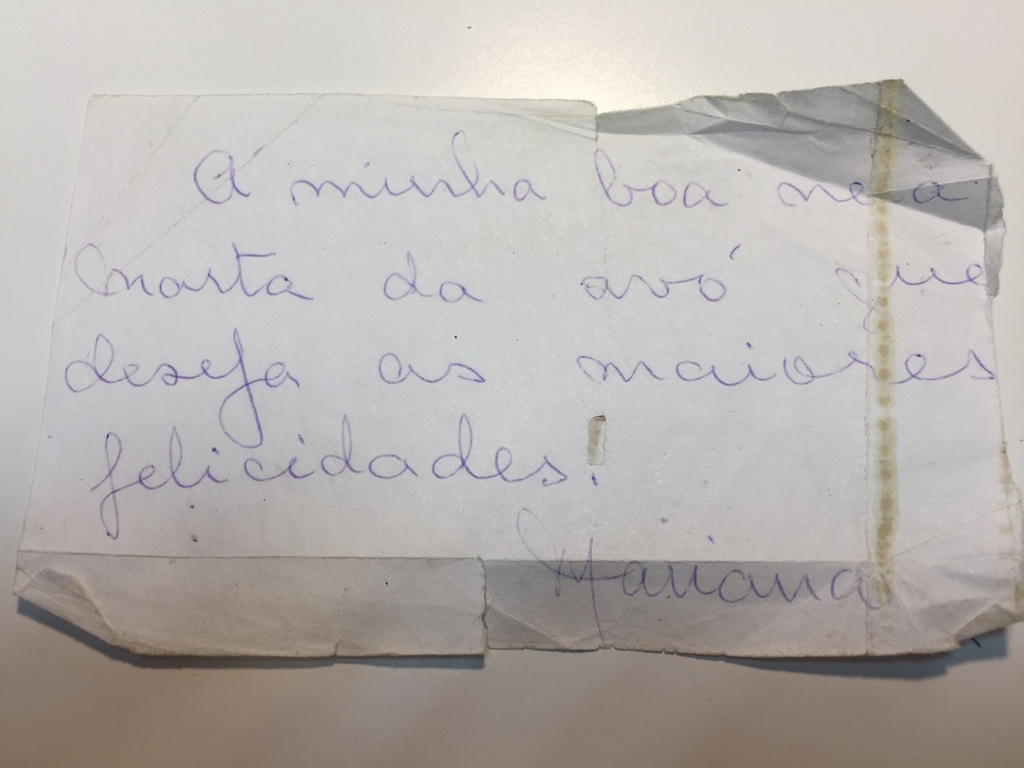 Á minha boa neta
Marta da avó que
deseja as maiores
felicidades!
Mariana